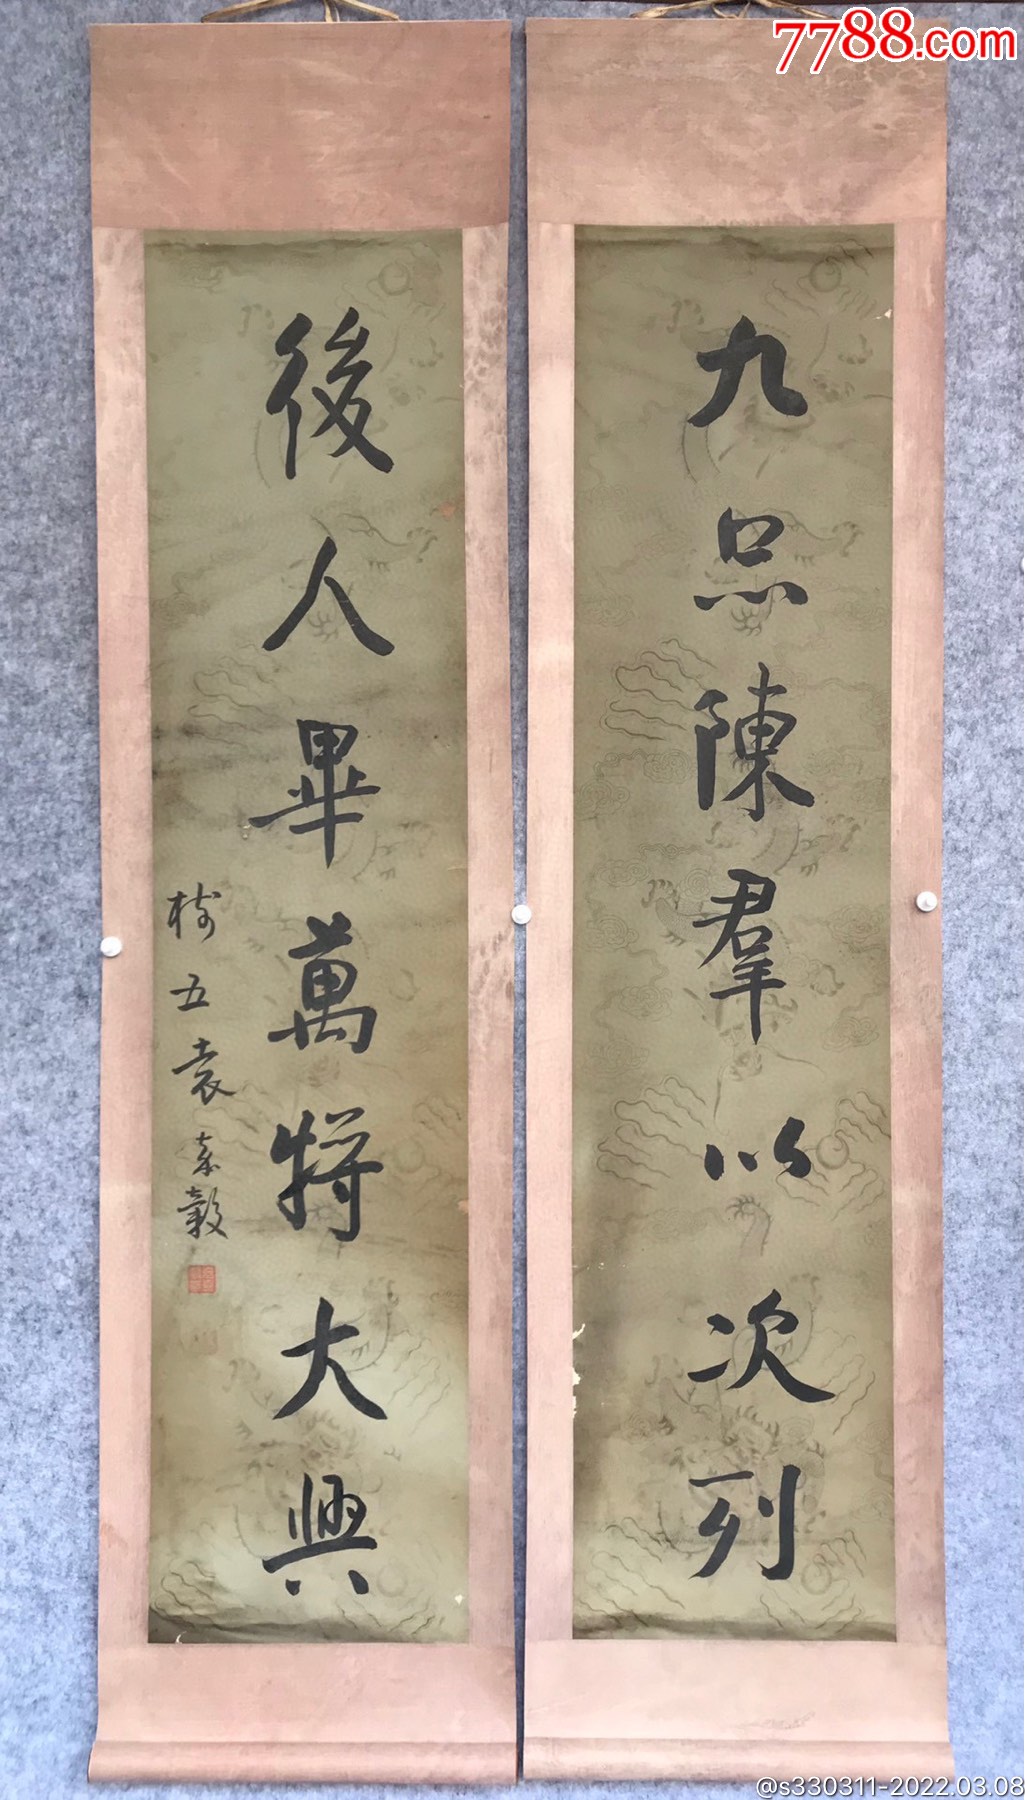 7788.com
九品陳羣以次列
後人畢萬將大興
樹五袁嘉穀
@s330311-2022.03.08